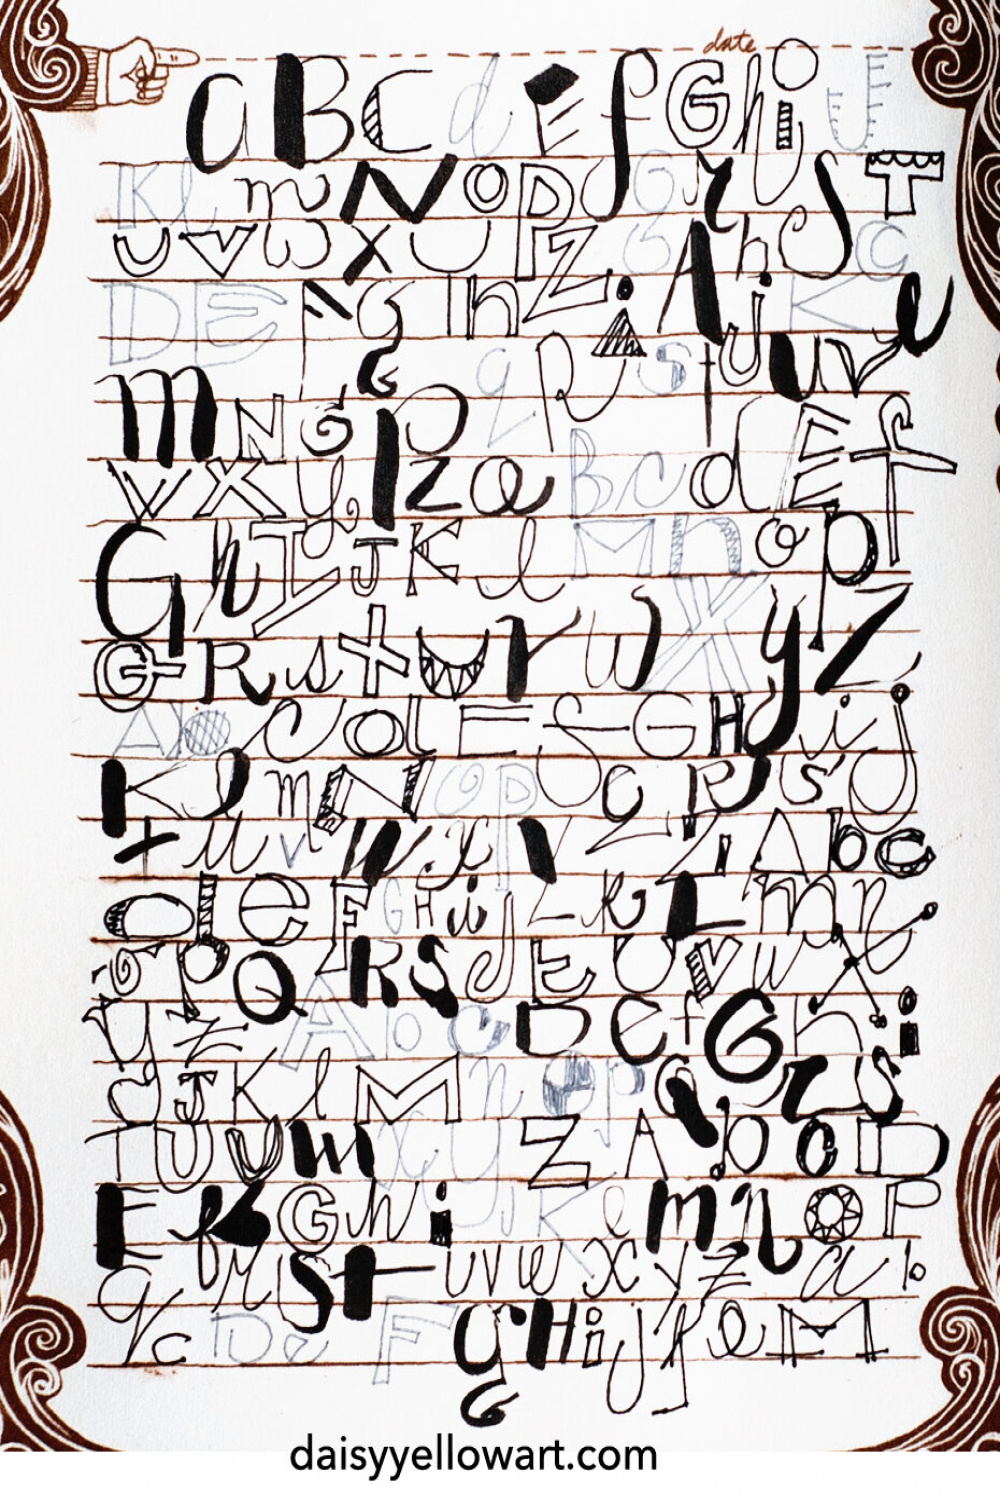 date
a B C d E f G h i J
K l m N O P Q r S T
U V W X Y Z A b C
D E F G h i J K l
M N O P q r S t U V
W X Y Z a B c d E f
G h I J K l M n o p
Q R S t U V W X Y Z
A b c d E F G H i j
K l m N O P Q R S
T U V W X Y Z A b c
d e F G H i J K L M n
O P Q R S T U V W X
Y Z A b C D e f G h i
J K l M n O P Q r S
T U V W X Y Z A b C D
E f G h i J K l m n O P
q r S t u v w x y z a b
c D e F G H i j k l M
daisyyellowart.com